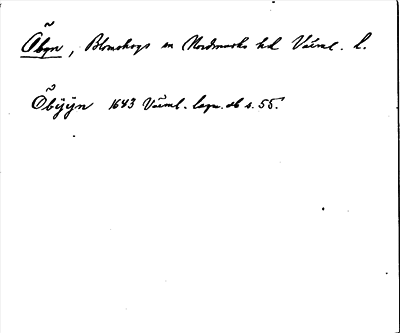 Õbyn, Blomskogs sn Nordmarks hd Värml. l.
Õbÿÿn 1643 Värml. lagn. db s. 55.